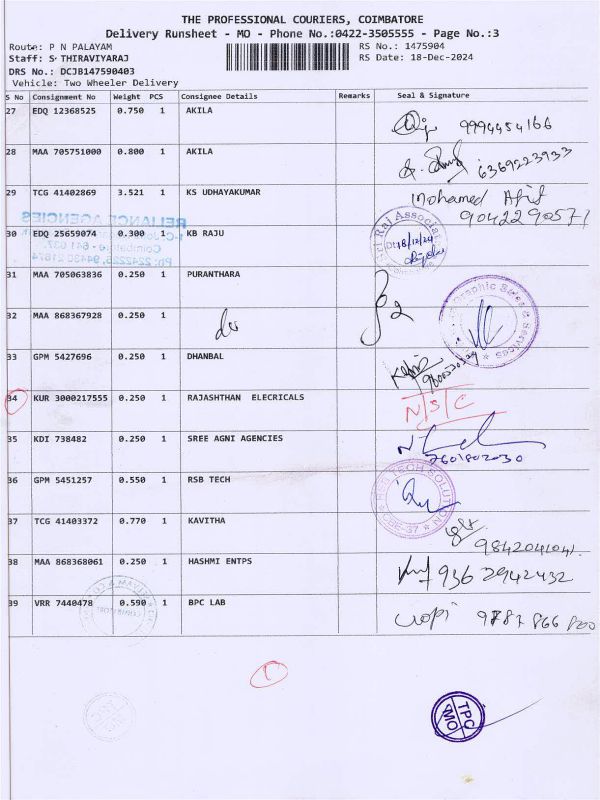 THE PROFESSIONAL COURIERS, COIMBATORE
Delivery Runsheet - MO - Phone No.:0422-3505555 - Page No.:3
Route: P N PALAYAM RS No.: 1475904
Staff: S THIRAVIYARAJ RS Date: 18-Dec-2024
DRS No.: DCJB147590403
Vehicle: Two Wheeler Delivery
S No Consignment No Weight PCS Consignee Details Remarks Seal & Signature
27 EDQ 12368525 0.750 1 AKILA 9994454166
28 MAA 705751000 0.800 1 AKILA 6369223933
29 TCG 41402869 3.521 1 KS UDHAYAKUMAR Mohamed 9042290571
RELIANCE AGENCIES
30 EDQ 25659074 0.300 1 KB RAJU Sri Raj Associat 18/12/24
Coimbatore - 641 037.
31 MAA 705063836 0.250 1 PURANTHARA
32 MAA 868367928 0.250 1 do Graphic Sales & Services
33 GPM 5427696 0.250 1 DHANBAL
34 KUR 3000217555 0.250 1 RAJASHTHAN ELECRICALS N/S/C
35 KDI 738482 0.250 1 SREE AGNI AGENCIES 7601802030
36 GPM 5451257 0.550 1 RSB TECH RSB TECH SOLUTION CBE-37
37 TCG 41403372 0.770 1 KAVITHA 9842041041
38 MAA 868368061 0.250 1 HASHMI ENTPS 9362942432
39 VRR 7440478 0.590 1 BPC LAB Gopi 9787866800
1
TPC
MO